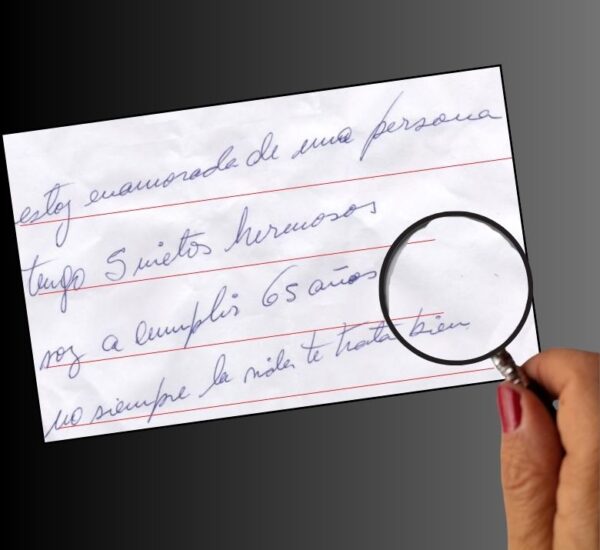 estoy enamorada de una persona
tengo 5 nietos hermosos
voy a cumplir 65 años
no siempre la vida te trata bien